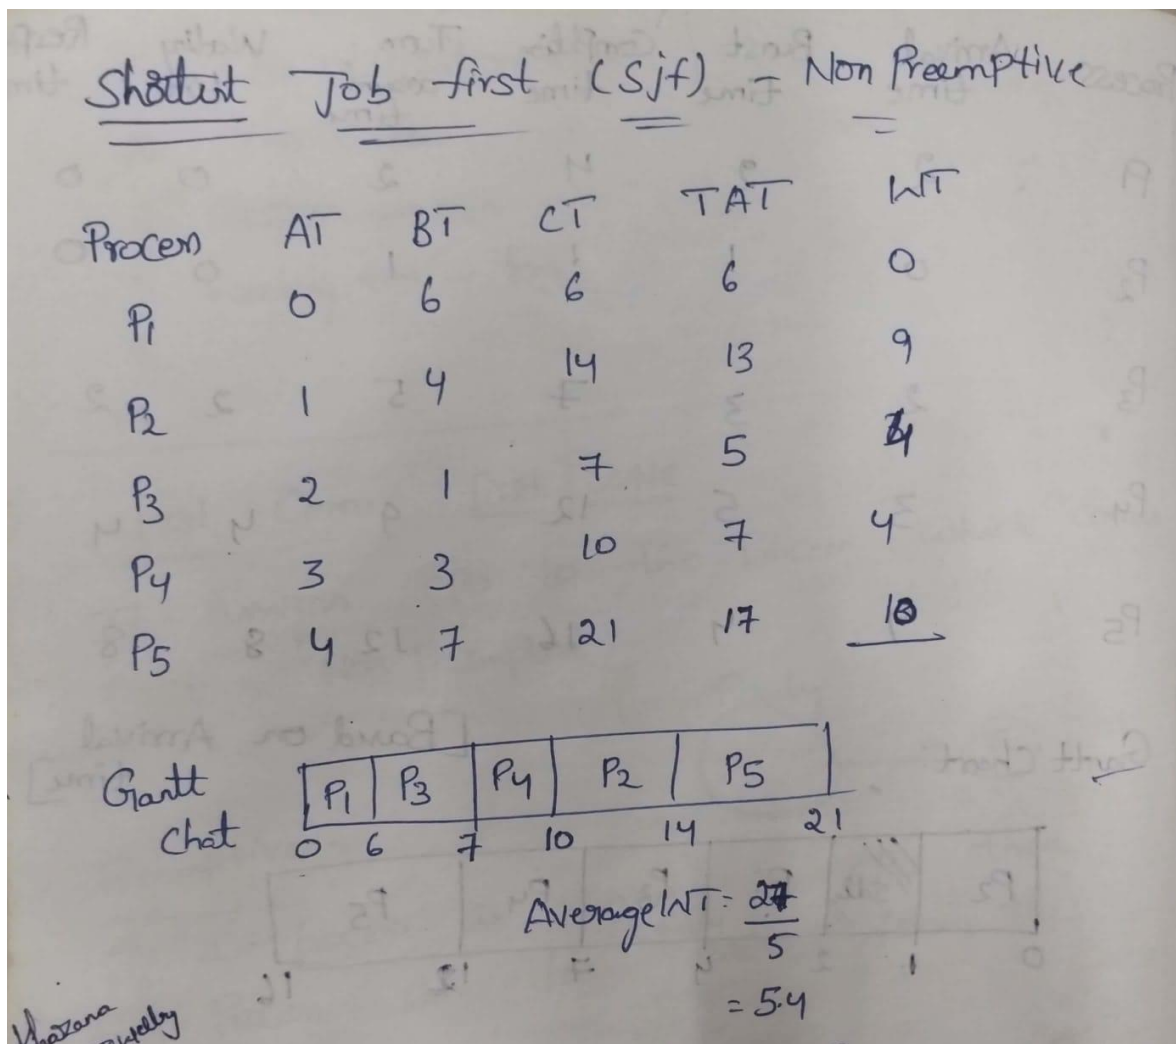 Shortest Job first (Sjf) - Non Preemptive
Process AT BT CT TAT WT
P1 0 6 6 6 0
P2 1 4 14 13 9
P3 2 1 7 5 4
P4 3 3 10 7 4
P5 4 7 21 17 10
Gantt P1 P3 P4 P2 P5
Chat 0 6 7 10 14 21
Average WT = 27
5
= 5.4
Khazana